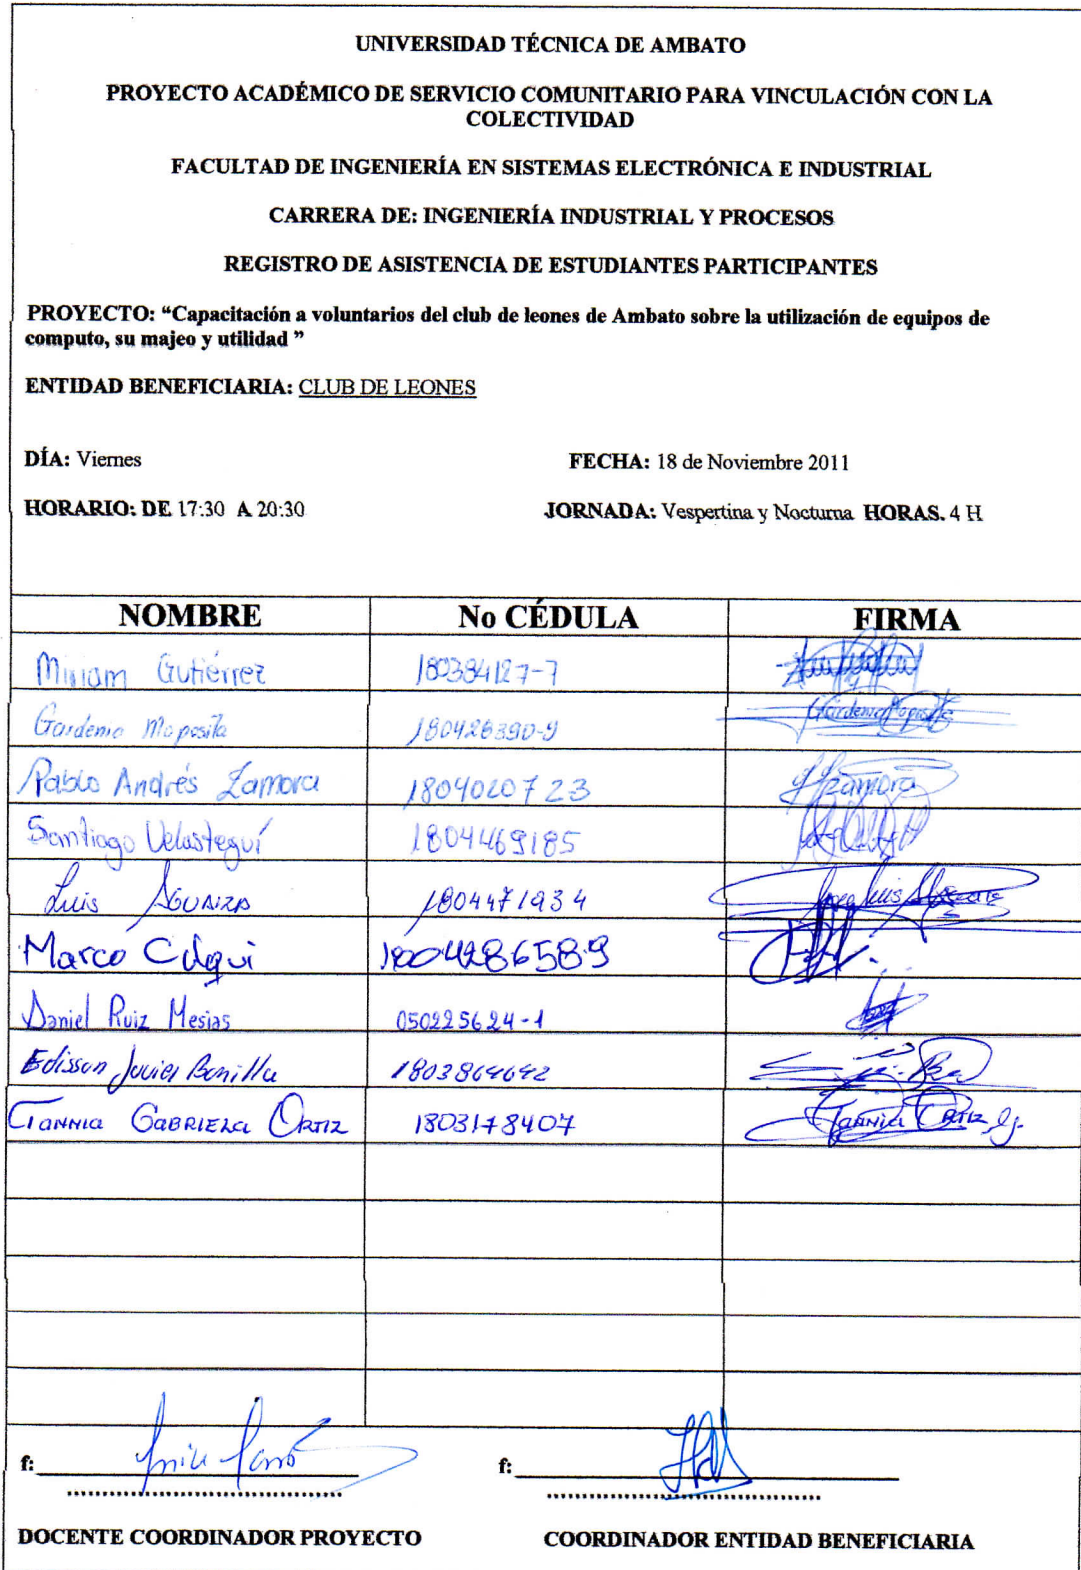 UNIVERSIDAD TÉCNICA DE AMBATO
PROYECTO ACADÉMICO DE SERVICIO COMUNITARIO PARA VINCULACIÓN CON LA
COLECTIVIDAD
FACULTAD DE INGENIERÍA EN SISTEMAS ELECTRÓNICA E INDUSTRIAL
CARRERA DE: INGENIERÍA INDUSTRIAL Y PROCESOS
REGISTRO DE ASISTENCIA DE ESTUDIANTES PARTICIPANTES
PROYECTO: “Capacitación a voluntarios del club de leones de Ambato sobre la utilización de equipos de
computo, su majeo y utilidad ”
ENTIDAD BENEFICIARIA: CLUB DE LEONES
DÍA: Viernes FECHA: 18 de Noviembre 2011
HORARIO: DE 17:30 A 20:30 JORNADA: Vespertina y Nocturna HORAS. 4 H
NOMBRE No CÉDULA FIRMA
Miriam Gutiérrez 180384127-7
Gardenia Moposita 180426390-9 Gardenia Moposita
Pablo Andrés Zamora 1804020723 Zamora
Santiago Velasteguí 1804469185
Luis AGUAIZA 1804471934 Luis
Marco 180428658-9
Daniel Ruiz Mesias 050225624-1
Edisson Javier Bonilla 1803864642
Tannia GABRIELA ORTIZ 1803178407 Tannia ORTIZ
f: f:
DOCENTE COORDINADOR PROYECTO COORDINADOR ENTIDAD BENEFICIARIA